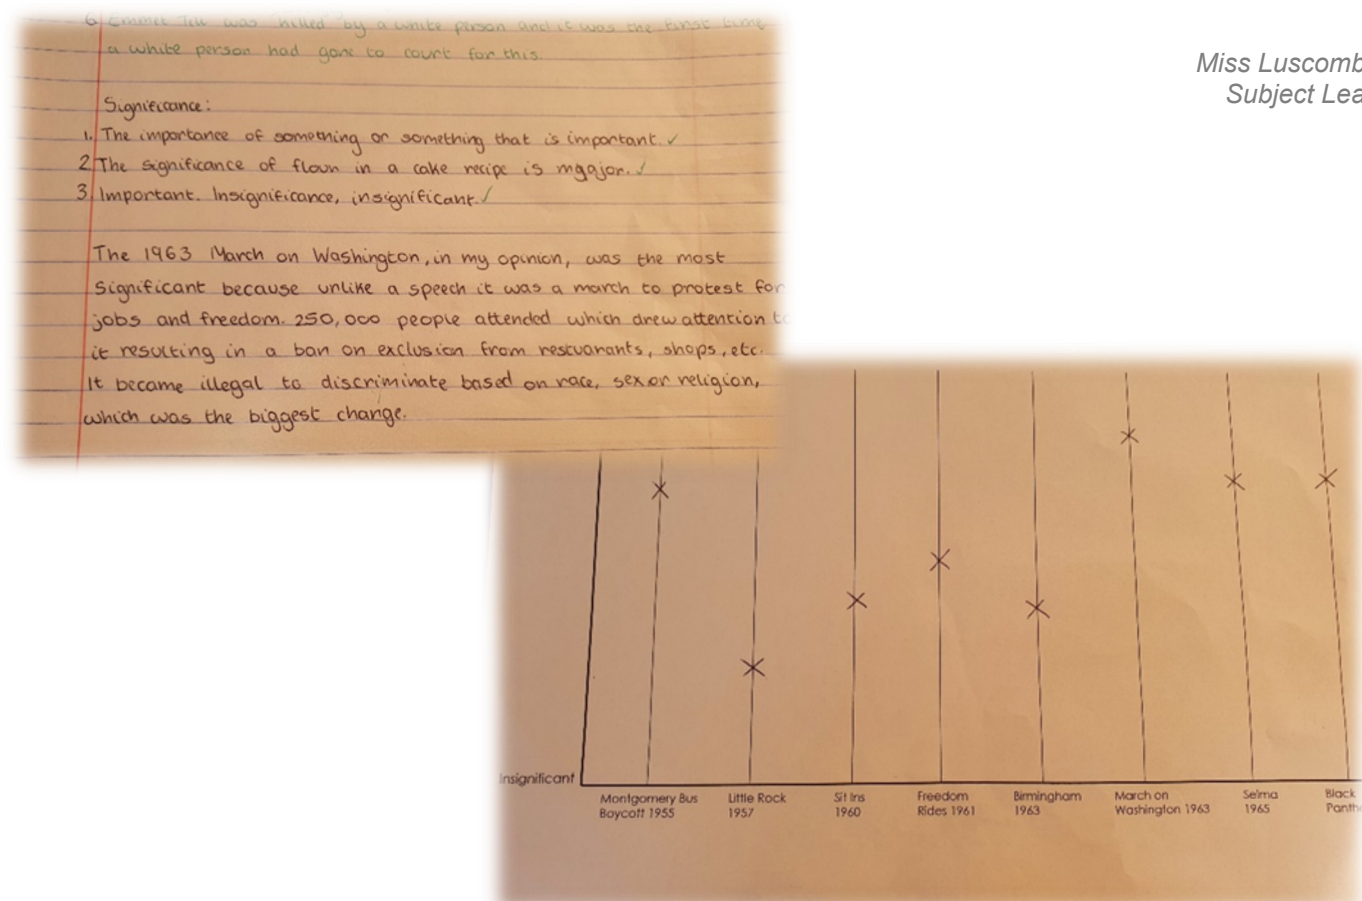 6 Emmet Till was killed by a white person and it was the first time
a white person had gone to court for this.
Significance:
1. The importance of something or something that is important. ✓
2. The significance of flour in a cake recipe is mgajor. ✓
3. Important. Insignificance, insignificant. ✓
The 1963 March on Washington, in my opinion, was the most
significant because unlike a speech it was a march to protest for
jobs and freedom. 250,000 people attended which drew attention to
it resulting in a ban on exclusion from restuarants, shops, etc.
It became illegal to discriminate based on race, sex or religion,
which was the biggest change.
Miss Luscomb
Subject Lea
Insignificant
Montgomery Bus
Boycott 1955
Little Rock
1957
Sit Ins
1960
Freedom
Rides 1961
Birmingham
1963
March on
Washington 1963
Selma
1965
Black
Panth